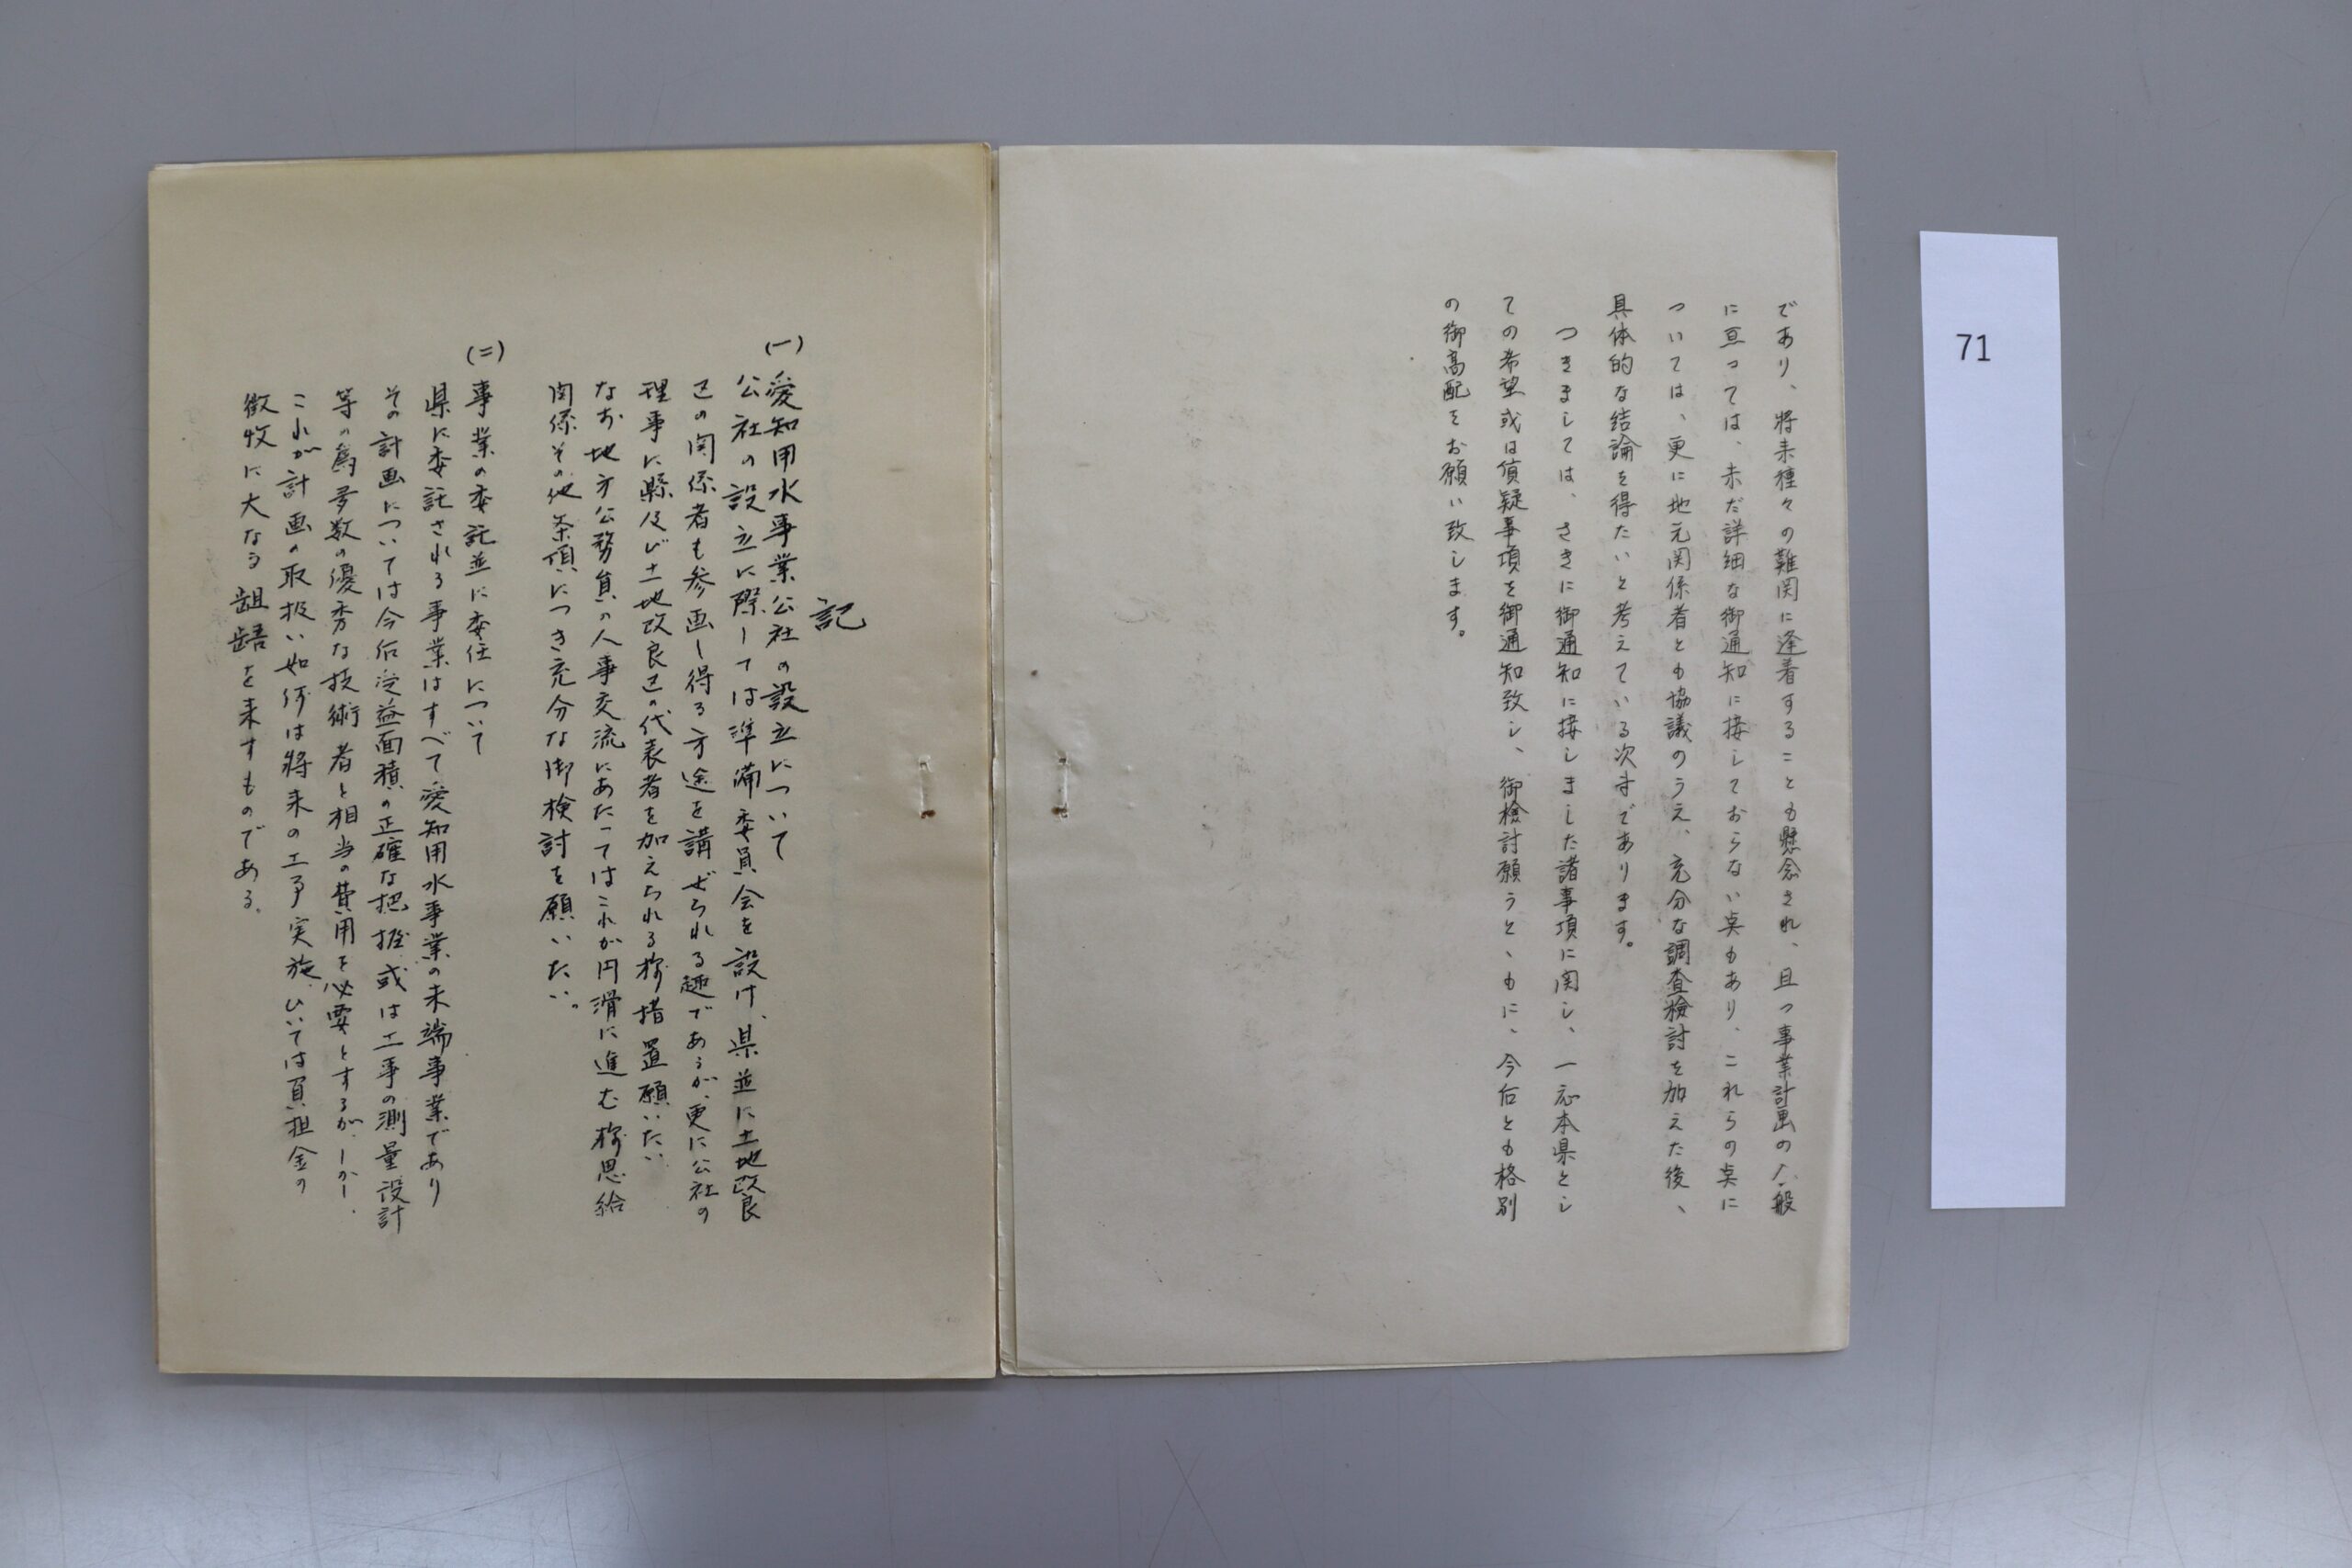 であり、將来種々の難関に逢着することも懸念され、且つ事業計画の全般
に亘つては、未だ詳細な御通知に接しておらない点もあり、これらの点に
ついては、更に地元関係者とも協議のうえ、充分な調査検討を加えた後、
具体的な結論を得たいと考えている次才であります。
つきましては、さきに御通知に接しました諸事項に関し、一応本県とし
ての希望或は質疑事項を御通知致し、御檢討願うとゝもに、今后とも格別
の御高配をお願い致します。
記
(一)愛知用水事業公社の設立について
公社の設立に際しては準備委員会を設け、県並に土地改良
区の関係者も参画し得る方途を講ぜられる趣であるが、更に公社の
理事に縣及び土地改良区の代表者を加えられる様措置願いたい
なお地方公務員の人事交流にあたってはこれが円滑に進む様恩給
関係その他条項につき充分な御検討を願いたい。
(二)
事業の委託並に委任について
県に委託される事業はすべて愛知用水事業の末端事業であり
その計画については今后受益面積の正確な把握或は工事の測量設計
等の為多数の優秀な技術者と相当の費用を必要とするが、しかし、
これが計画の取扱い如何は將来の工事実施、ひいては負担金の
徴收に大なる齟齬を来すものである。
71